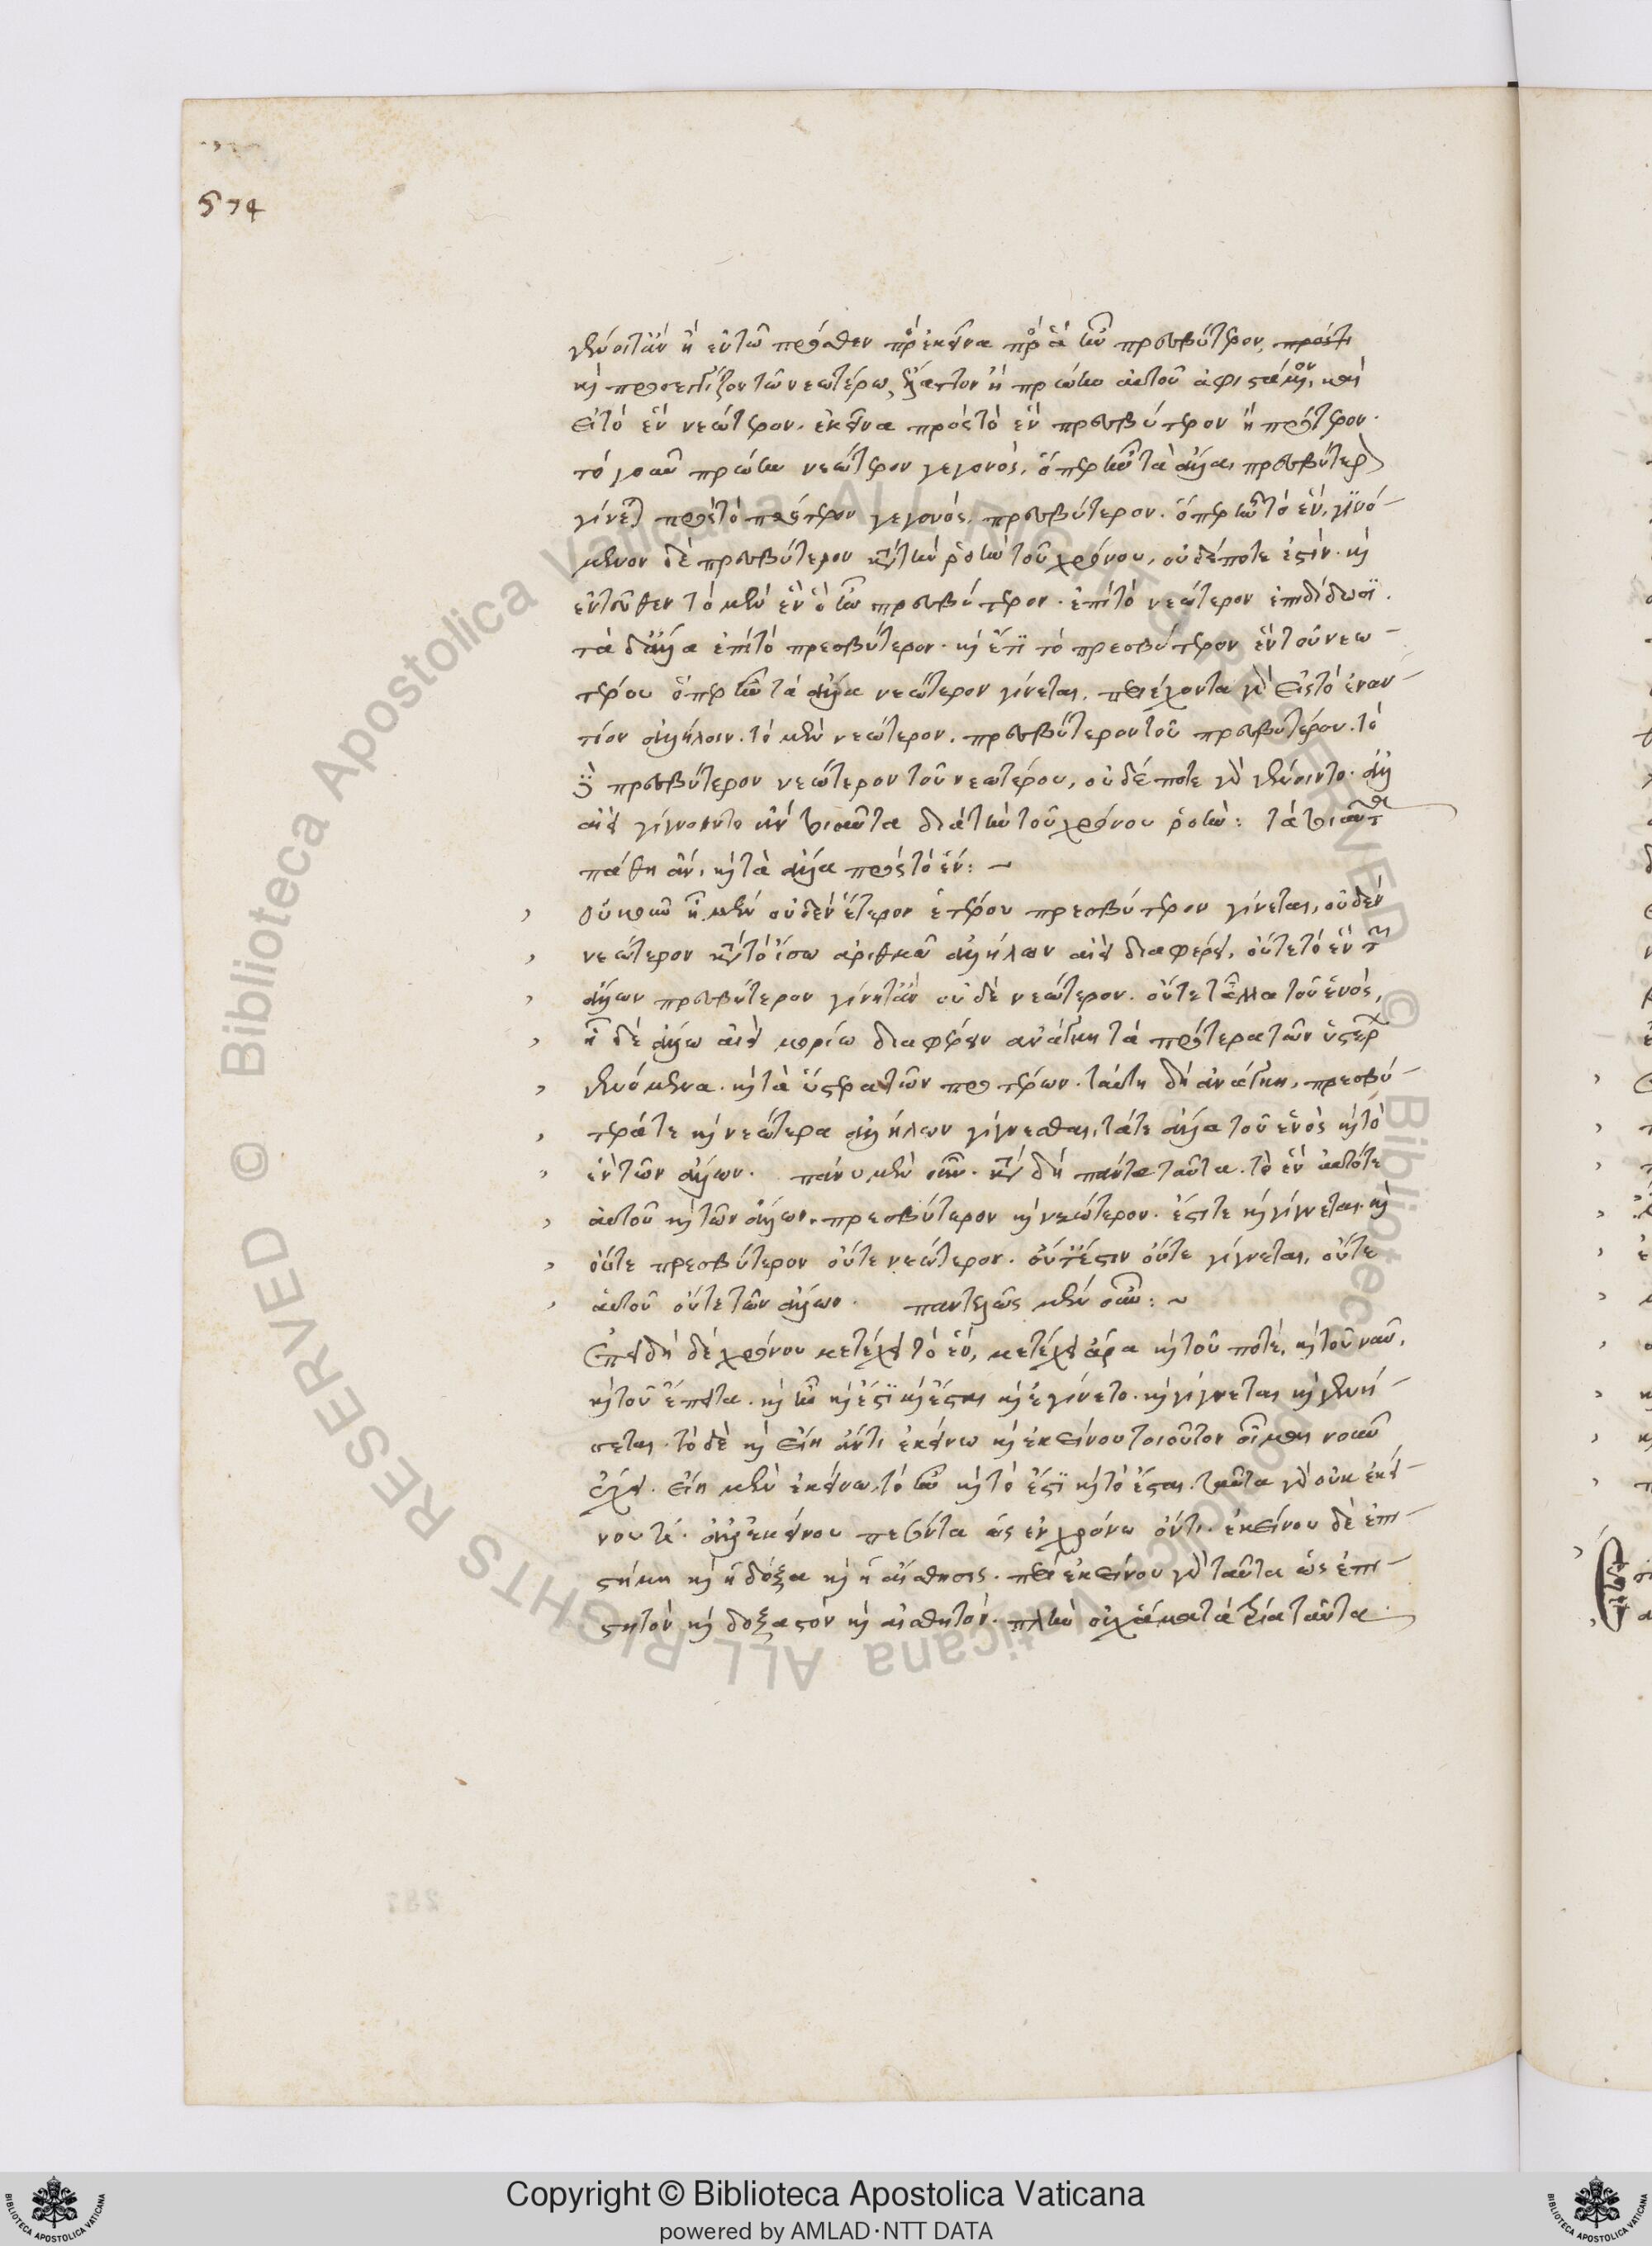 574
γένοιτ' ἂν ἢ ἐν τῷ πρόσθεν πρὸς ἐκεῖνα πρὸς ἃ ἦν πρεσβύτερον,
καὶ προσεγγίζον τῷ νεωτέρῳ, ἔλαττον ἢ πρώην αὐτοῦ ἀφιστάμενον,
εἰ τὸ ἓν νεώτερον. ἐκεῖνα πρὸς τὸ ἓν πρεσβύτερον ἢ πρότερον.
τὸ γοῦν πρώην νεώτερον γεγονός, ὅπερ ἦν τὰ ἄλλα, πρεσβύτερον
γίνεται πρὸς τὸ πρότερον γεγονός, πρεσβύτερον. ὅπερ ἦν τὸ ἕν, γινό-
μενον δὲ πρεσβύτερον κατὰ τὴν ῥοὴν τοῦ χρόνου, οὐδέποτε ἐστίν. καὶ
ἐντεῦθεν τὸ μὲν ἓν ὃ ἦν πρεσβύτερον. ἐπὶ τὸ νεώτερον ἐπιδίδωσι.
τὰ δ' ἄλλα ἐπὶ τὸ πρεσβύτερον. καὶ ἔτι τὸ πρεσβύτερον ἓν τοῦ νεω-
τέρου ὅπερ ἦν τὰ ἄλλα νεώτερον γίνεται. γὰρ εἰς τὸ ἐναν-
τίον ἀλλήλοιν. τὸ μὲν νεώτερον, πρεσβύτερον τοῦ πρεσβυτέρου. τὸ
δὲ πρεσβύτερον νεώτερον τοῦ νεωτέρου, οὐδέποτε γὰρ γένοιντο. ἀλλ'
ἀεὶ γίγνοιντο ἂν τοιαῦτα διὰ τὴν τοῦ χρόνου ῥοήν: τὰ τοιαῦτα
πάθῃ ἄν, καὶ τὰ ἄλλα πρὸς τὸ ἕν: ~
οὐκοῦν ᾗ μὲν οὐδὲν ἕτερον ἑτέρου πρεσβύτερον γίνεται, οὐδὲν
νεώτερον κατὰ τὸ ἴσῳ ἀριθμῷ ἀλλήλων ἀεὶ διαφέρειν, οὔτε τὸ ἓν τῶν
ἄλλων πρεσβύτερον γίνητ' ἂν οὐδὲ νεώτερον. οὔτε τἆλλα τοῦ ἑνός,
ᾗ δὲ ἄλλῳ ἀεὶ μορίῳ διαφέρειν ἀνάγκη τὰ πρότερα τῶν ὑστέρων
γενόμενα. καὶ τὰ ὕστερα τῶν προτέρων. ταύτῃ δὴ ἀνάγκη, πρεσβύ-
τερά τε καὶ νεώτερα ἀλλήλων γίγνεσθαι, τά τε ἄλλα τοῦ ἑνὸς καὶ τὸ
ἓν τῶν ἄλλων. πάνυ μὲν οὖν. κατὰ δὴ πάντα ταῦτα. τὸ ἓν αὐτό τε
αὐτοῦ καὶ τῶν ἄλλων, πρεσβύτερον καὶ νεώτερον. ἔστι τε καὶ γίγνεται καὶ
οὔτε πρεσβύτερον οὔτε νεώτερον. οὔτ' ἔστιν οὔτε γίγνεται, οὔτε
αὐτοῦ οὔτε τῶν ἄλλων. παντελῶς μὲν οὖν: ~
Ἐπειδὴ δὲ χρόνου μετέχει τὸ ἕν, μετέχει ἄρα καὶ τοῦ ποτέ, καὶ τοῦ νῦν,
καὶ τοῦ ἔπειτα. καὶ ἦν καὶ ἔστι καὶ ἔσται καὶ ἐγίνετο. καὶ γίγνεται καὶ γενή-
σεται. τὸ δὲ καὶ εἴη ἄν τι ἐκείνῳ καὶ ἐκείνου τοιοῦτον οἶμαι νοῦν
ἔχει. εἴη μὲν ἐκείνῳ, τὸ ἦν καὶ τὸ ἔστι καὶ τὸ ἔσται. ταῦτα γὰρ οὐκ ἐκεί-
νου τί. ἀλλ' ἐκείνου ὡς ἐν χρόνῳ ὄντι. ἐκείνου δὲ ἐπι-
στήμη καὶ ἡ δόξα καὶ ἡ αἴσθησις. περὶ ἐκείνου γὰρ ταῦτα ὡς ἐπι-
στητὸν καὶ δοξαστὸν καὶ αἰσθητόν. πλὴν οὐχ ἅμα τὰ τρία ταῦτα.
Copyright © Biblioteca Apostolica Vaticana
powered by AMLAD·NTT DATA